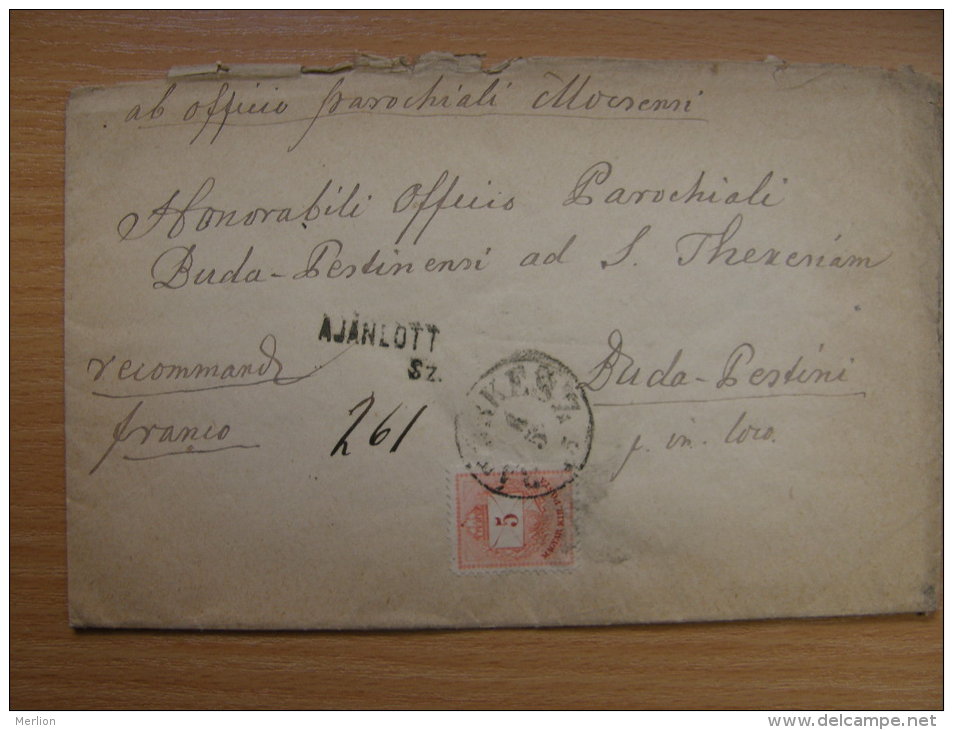 ab officio parochiali Mocsensi
Honorabili Officio Parochiali
Buda-Pestinensi ad S. Theresiam
AJÁNLOTT
Sz.
recommand
Buda-Pestini
franco
261
p. in. loco.
5
MAGYAR KIR. POSTA
Merlion
www.delcampe.net